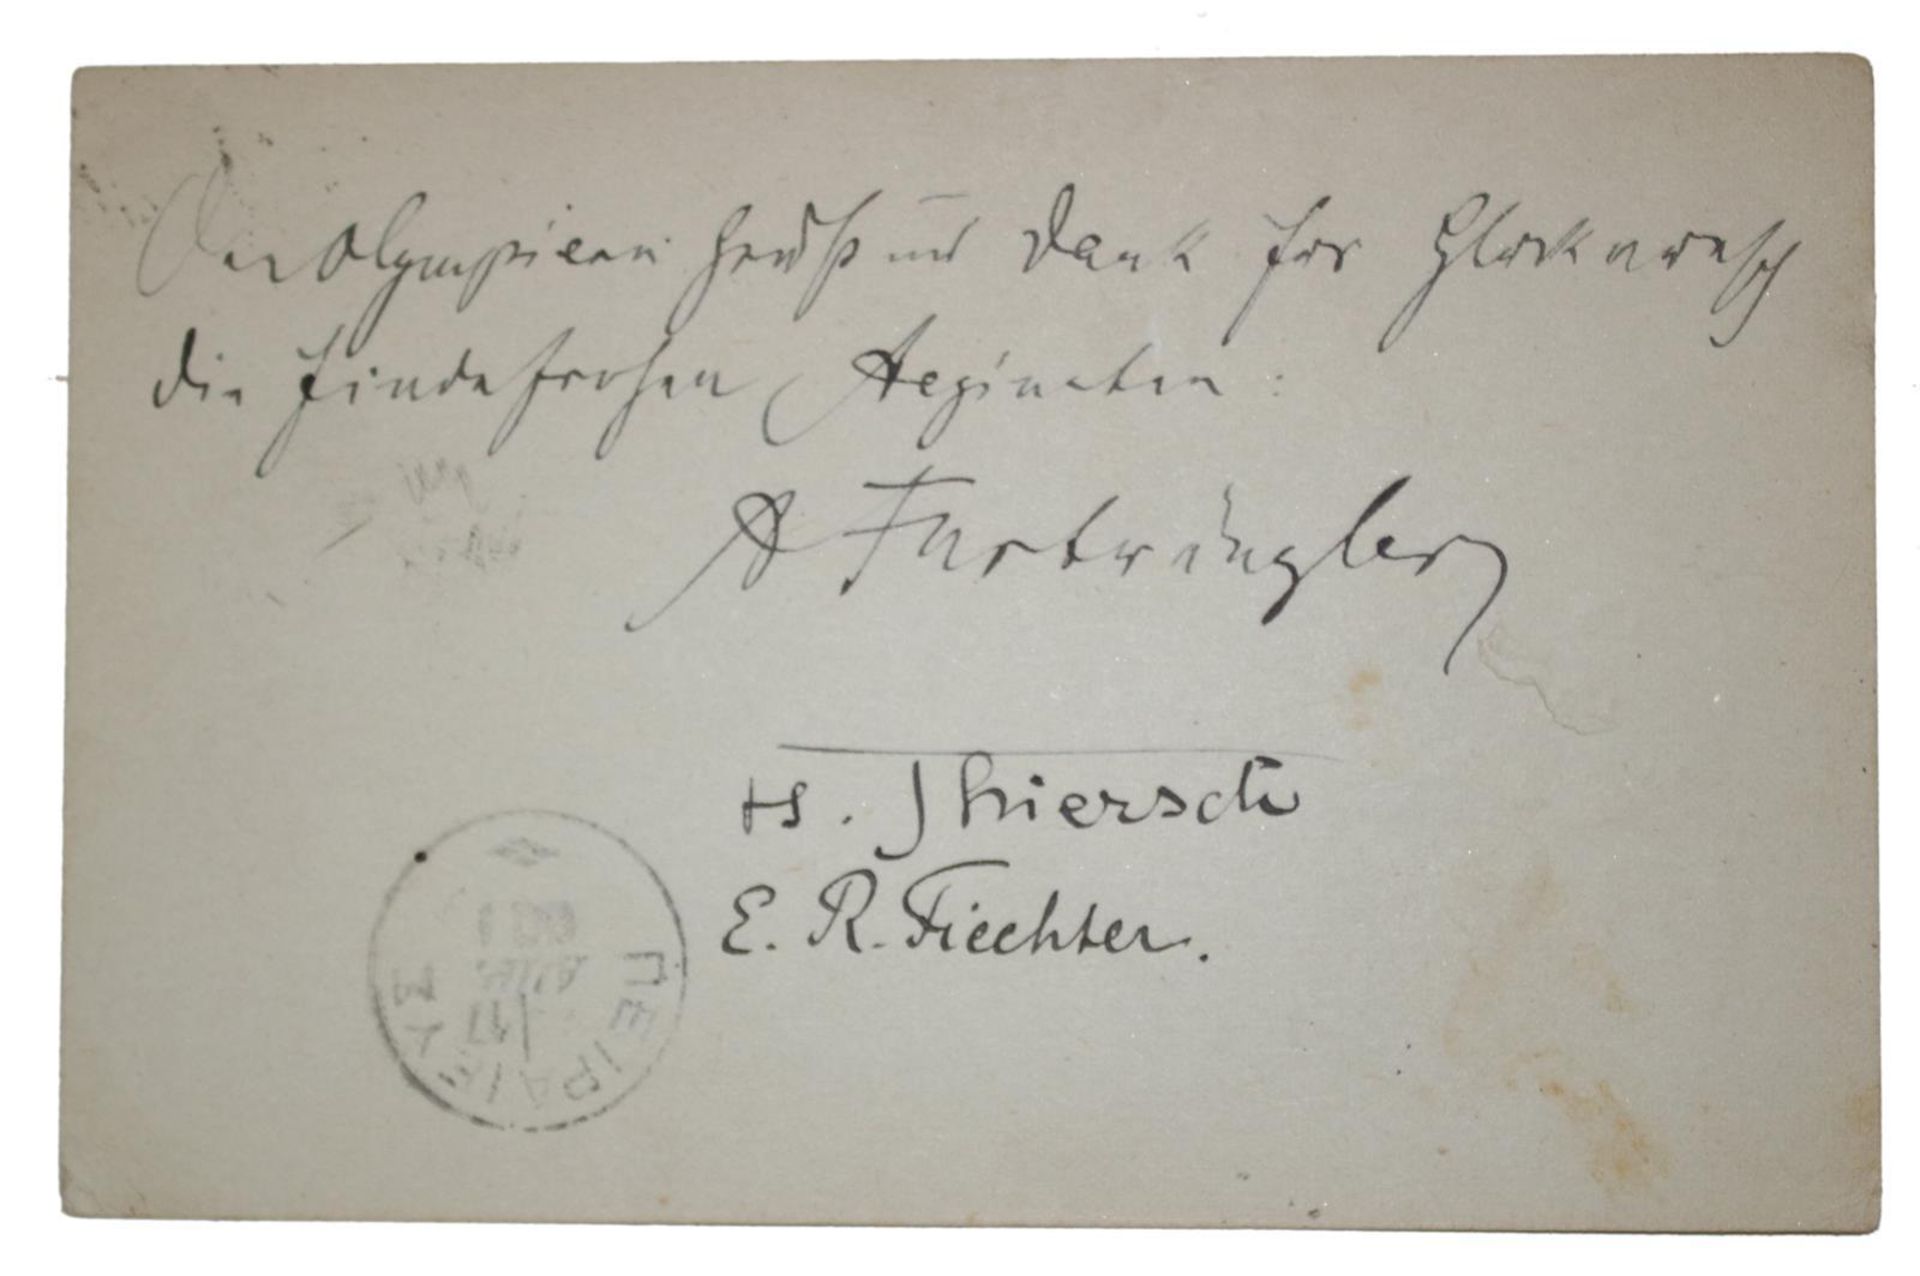 Den Olympiern Gruß und Dank für Glückwunsch
die findefrohen Aegineten:
A Furtwängler
H. Thiersch
E. R. Fiechter.
ΠΕΙΡΑΙΕΥΣ